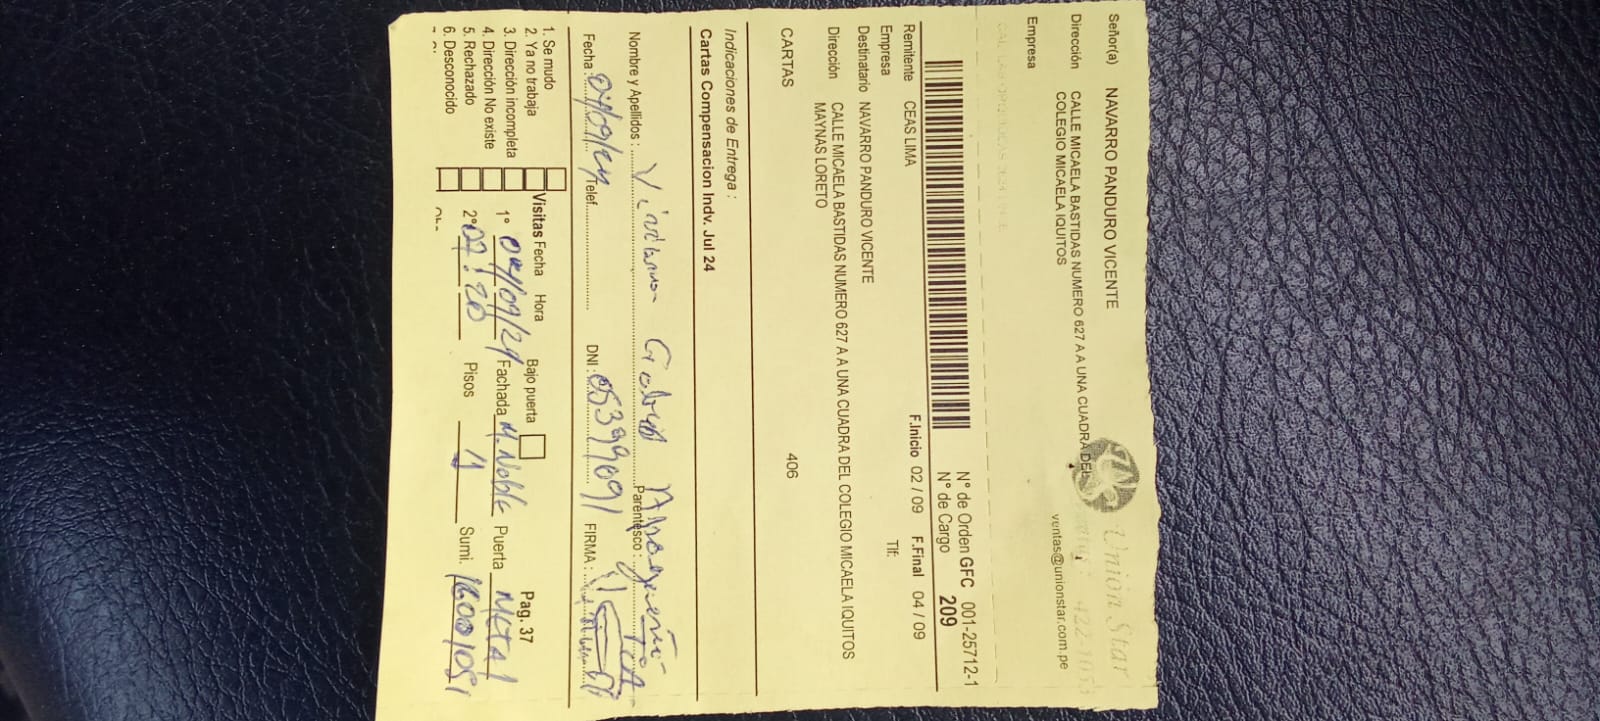 Union Star
Señor(a) NAVARRO PANDURO VICENTE
Dirección CALLE MICAELA BASTIDAS NUMERO 627 A A UNA CUADRA DEL
COLEGIO MICAELA IQUITOS
ventas@unionstar.com.pe
Empresa
N° de Orden GFC 001-25712-1
N° de Cargo 209
F.Inicio 02 / 09 F.Final 04 / 09
Remitente CEAS LIMA
Empresa Tlf:
Destinatario NAVARRO PANDURO VICENTE
Dirección CALLE MICAELA BASTIDAS NUMERO 627 A A UNA CUADRA DEL COLEGIO MICAELA IQUITOS
MAYNAS LORETO
CARTAS 406
Indicaciones de Entrega :
Cartas Compensacion Indv. Jul 24
Nombre y Apellidos : Parentesco :
Fecha : 04/09/24 Telef. DNI: 05399091 FIRMA :
Pag. 37
1. Se mudo
2. Ya no trabaja
3. Dirección incompleta
4. Dirección No existe
5. Rechazado
6. Desconocido
Visitas Fecha Hora Bajo puerta
1° 04/09/24 Fachada M. Noble Puerta Metal
2° 07:20 Pisos 1 Sumi. 16001051